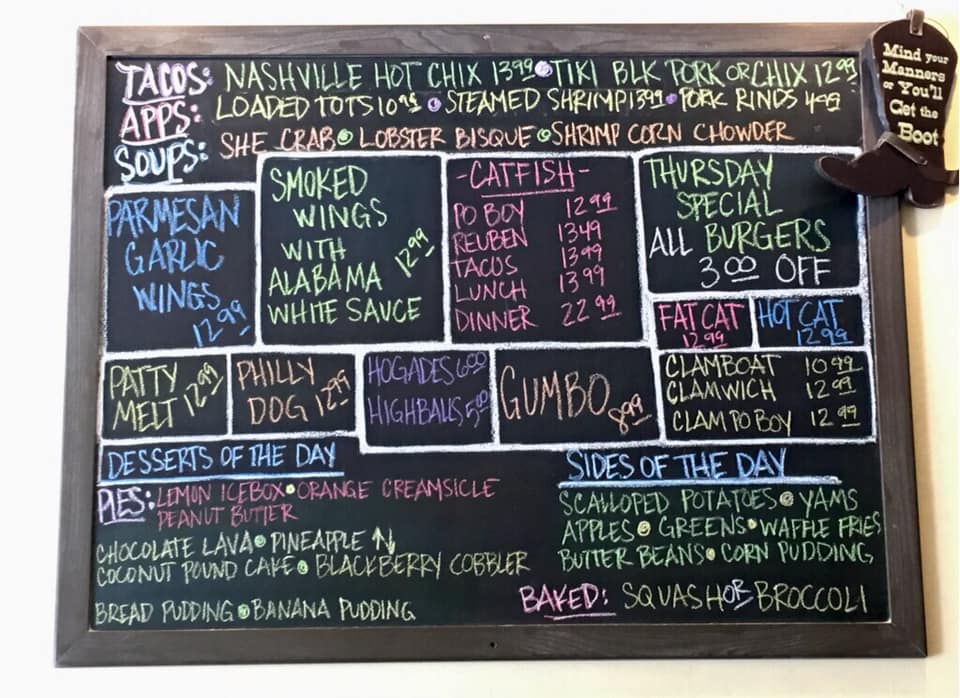 TACOS: NASHVILLE HOT CHIX 13.99 • TIKI BLK PORK OR CHIX 12.99
APPS: LOADED TOTS 10.99 • STEAMED SHRIMP 13.99 • PORK RINDS 4.99
SOUPS: SHE CRAB • LOBSTER BISQUE • SHRIMP CORN CHOWDER
PARMESAN
GARLIC
WINGS
12.99
SMOKED
WINGS
WITH
ALABAMA 12.99
WHITE SAUCE
-CATFISH-
PO BOY 12.99
REUBEN 13.49
TACOS 13.99
LUNCH 13.99
DINNER 22.99
THURSDAY
SPECIAL
ALL BURGERS
3.00 OFF
FAT CAT
12.99
HOT CAT
12.99
PATTY
MELT 12.99
PHILLY
DOG 12.99
HOGADES 6.00
HIGHBALLS 5.00
GUMBO 8.99
CLAMBOAT 10.99
CLAMWICH 12.99
CLAM PO BOY 12.99
DESSERTS OF THE DAY
PIES: LEMON ICEBOX • ORANGE CREAMSICLE
PEANUT BUTTER
CHOCOLATE LAVA • PINEAPPLE ↑↓
COCONUT POUND CAKE • BLACKBERRY COBBLER
BREAD PUDDING • BANANA PUDDING
SIDES OF THE DAY
SCALLOPED POTATOES • YAMS
APPLES • GREENS • WAFFLE FRIES
BUTTER BEANS • CORN PUDDING
BAKED: SQUASH OR BROCCOLI
Mind your
Manners
or You'll
Get the
Boot